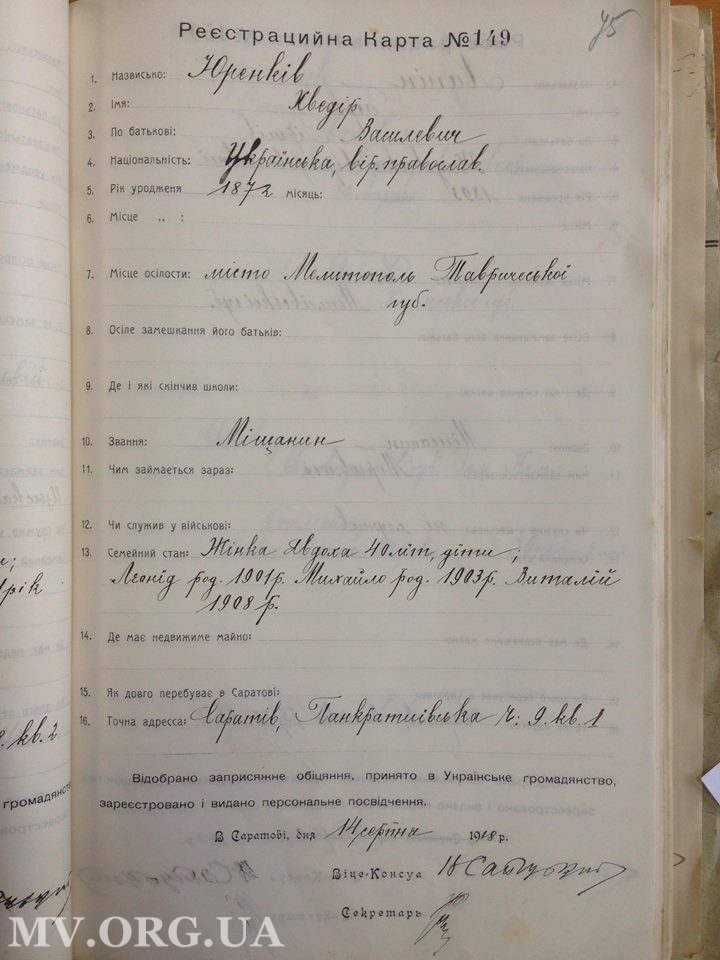 75
Реєстраційна Карта № 149
1. Назвисько: Юренків
2. Імя: Хведір
3. По батькові: Василевич
4. Національність: Українська, вір. православ.
5. Рік уродженя 1872 місяць:
6. Місце „ :
7. Місце осілости: місто Мелитополь Тавричеської
губ.
8. Осіле замешкання його батьків:
9. Де і які скінчив школи:
10. Звання: Міщанин
11. Чим займається зараз:
12. Чи служив у військові:
13. Семейний стан: Жінка Явдоха 40 літ, діти;
Леонід род. 1901 р. Михайло род. 1903 р. Виталій
1908 р.
14. Де має недвижиме майно:
15. Як довго перебуває в Саратові:
16. Точна адресса: Саратів, Панкратиївська ч: 9. кв. 1
Відобрано заприсяжне обіцяння, принято в Українське громадянство,
зареєстровано і видано персональне посвідчення.
В Саратові, дня 14 серпня 1918 р.
Віце-Консул
Секретарь
рік
кв. 2
громадянство
MV.ORG.UA